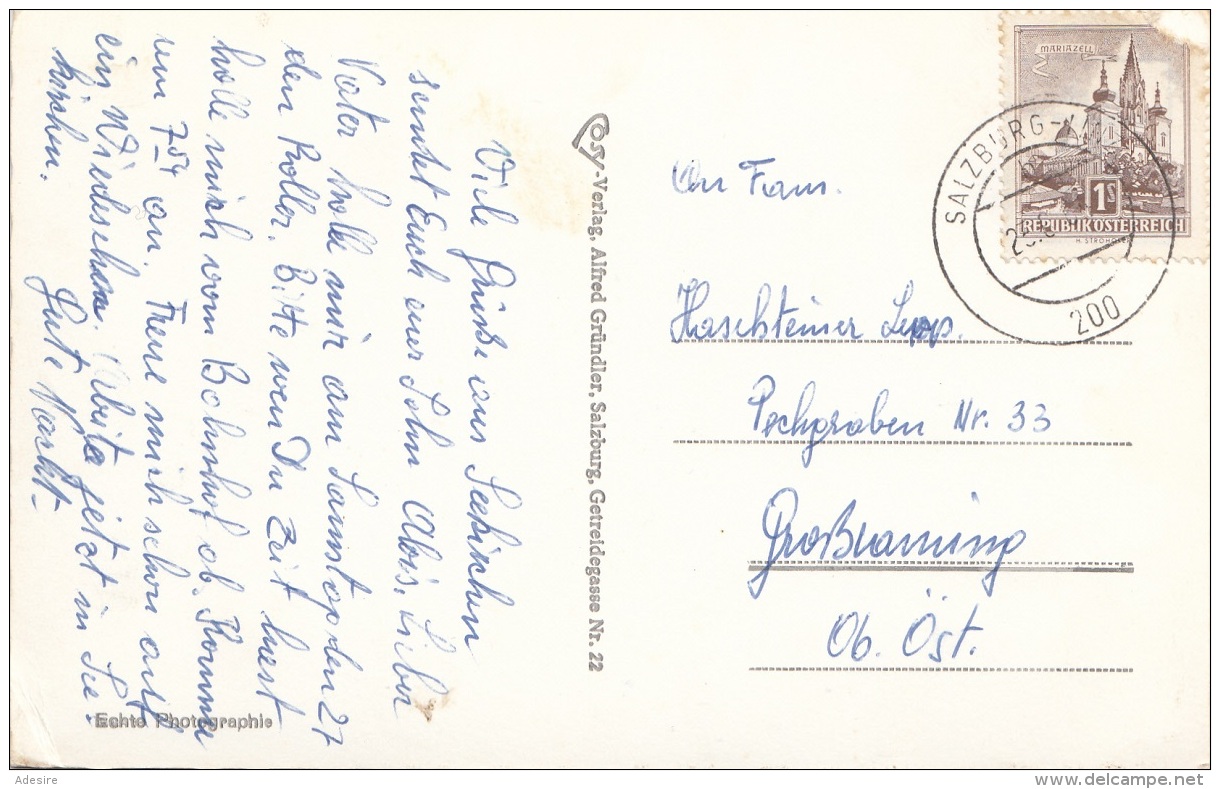 Viele Grüße aus Seekirchen
sendet Euch euer Sohn Alois. Lieber
Vater holle mir am Samstag den 27
den Roller. Bitte wen Du Zeit hast
holle mich vom Bahnhof ab. Komme
um 7 54 an. Freue mich schon auf
ein Wiedersehen. Arbeite jetzt in See-
kirchen. Gute Nacht-
Echte Photographie
Cosy-Verlag, Alfred Gründler, Salzburg, Getreidegasse Nr. 22
MARIAZELL
1S
REPUBLIK ÖSTERREICH
H. STROHOFER
SALZBURG
200
An Fam.
Haschteiner Leop.
Pechgraben Nr. 33
Großraming
Ob. Öst.
Adesire
www.delcampe.net